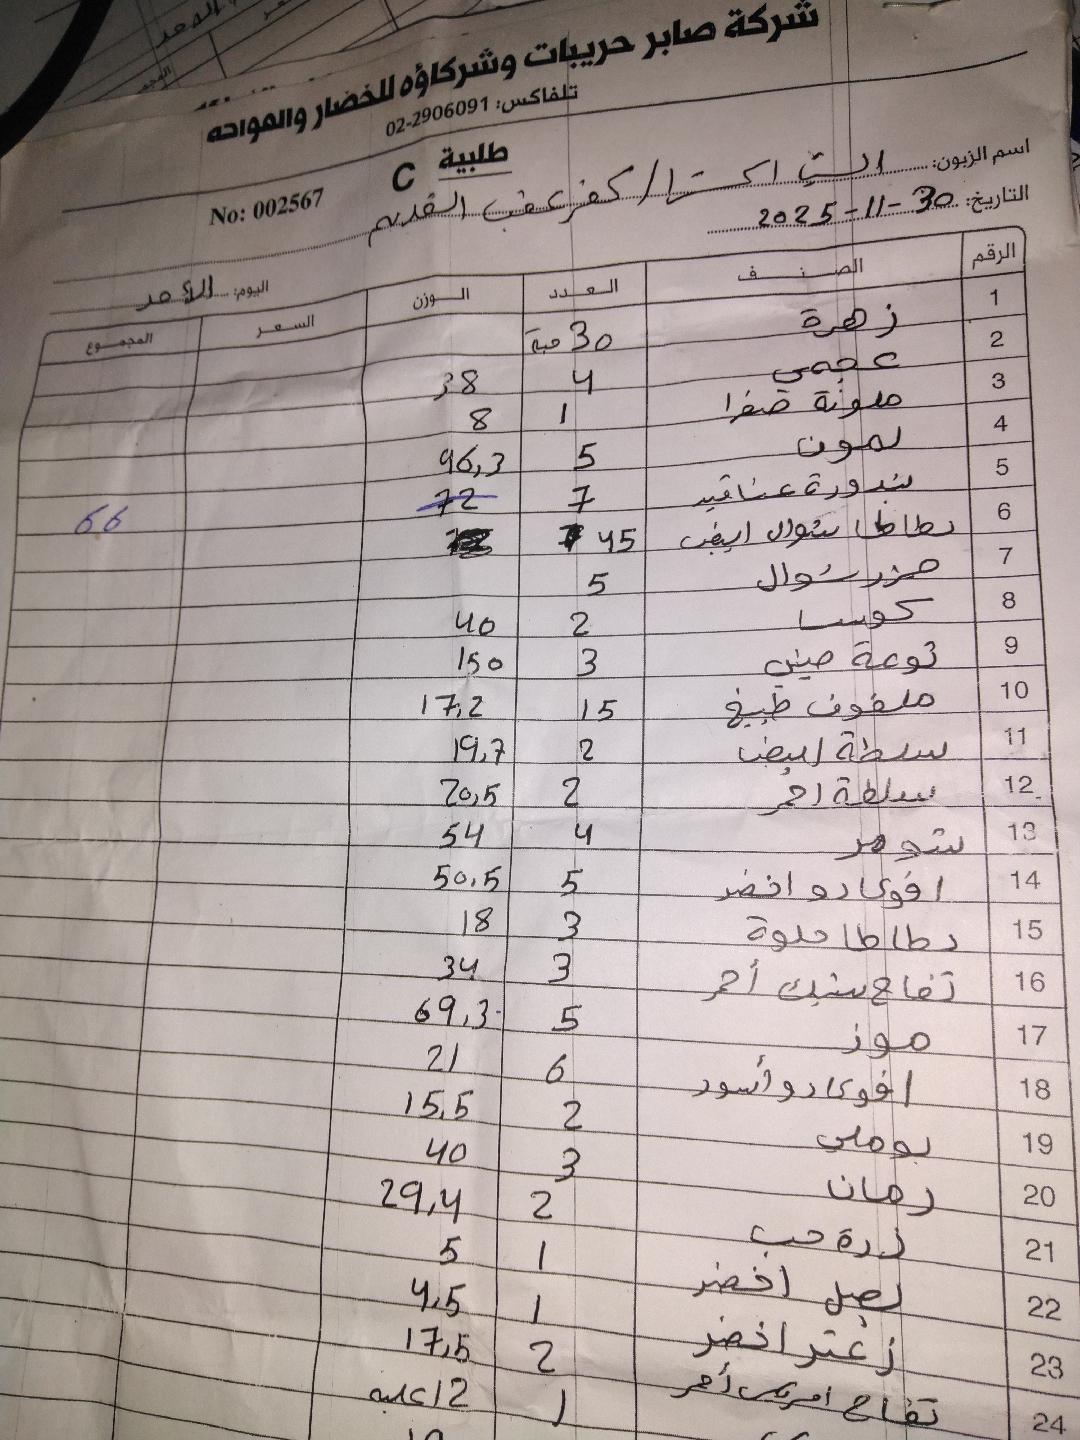 شركة صابر حريبات وشركاؤه للخضار والفواكه
تلفاكس: 02-2906091
طلبية C
No: 002567
اسم الزبون:
كفر عقب القديم
التاريخ: 30-11-2025
اليوم: الاحد
الرقم الصنف العدد الوزن السعر المجموع
1 زهرة 30 حبة
2 عجمي 4 38
3 ملونة صفرا 1 8
4 لمون 5 96,3
5 بندورة عناقيد 7 72 66
6 بطاطا شوال ابيض 45
7 جزر شوال 5
8 كوسا 2 40
9 ثومة صيني 3 150
10 ملفوف طبيخ 15 17,2
11 سلطة ابيض 2 19,7
12 سلطة احمر 2 20,5
13 شومر 4 54
14 افوكادو اخضر 5 50,5
15 بطاطا حلوة 3 18
16 تفاح بينك أحمر 3 34
17 موز 5 69,3
18 افوكادو أسود 6 21
19 بوملي 2 15,5
20 رمان 3 40
21 ذرة حب 2 29,4
22 بصل اخضر 1 5
23 زعتر اخضر 1 4,5
24 تفاح امريكي أحمر 2 17,5
1 12 علبه